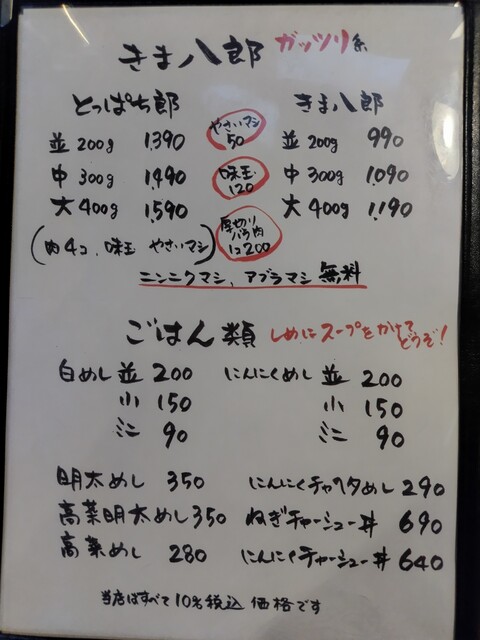 きま八郎 ガッツリ系
とっぱち郎
並 200g 1,390
中 300g 1,490
大 400g 1,590
(肉4コ、味玉 やさいマシ)
やさいマシ
50
味玉
120
厚切り
バラ肉
1コ200
きま八郎
並 200g 990
中 300g 1,090
大 400g 1,190
ニンニクマシ、アブラマシ 無料
ごはん類 しめにスープをかけて
どうぞ!
白めし 並 200
小 150
ミニ 90
にんにくめし 並 200
小 150
ミニ 90
明太めし 350
高菜明太めし 350
高菜めし 280
にんにくチャヘタめし 290
ねぎチャーシュー丼 690
にんにくチャーシュー丼 640
当店はすべて10%税込価格です